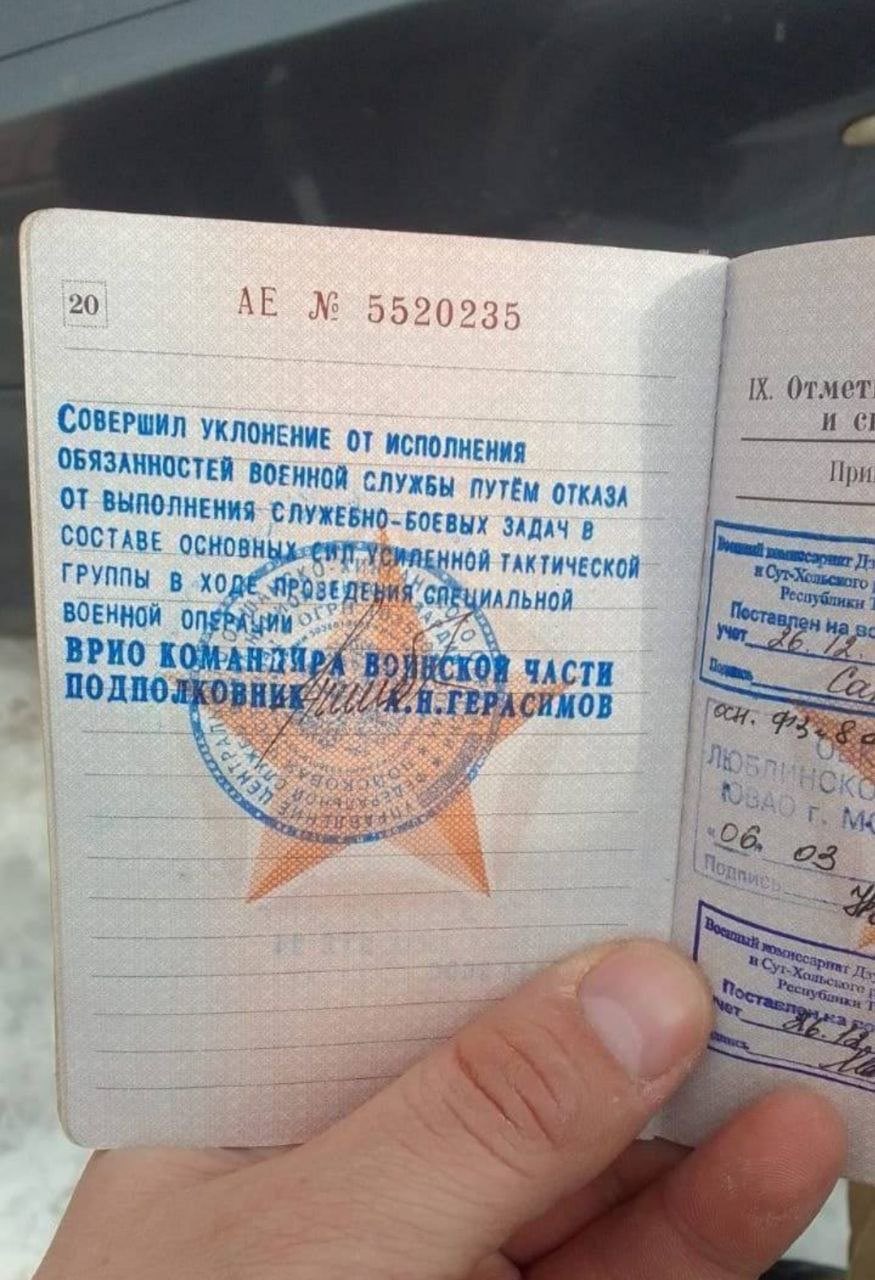 20
АЕ № 5520235
СОВЕРШИЛ УКЛОНЕНИЕ ОТ ИСПОЛНЕНИЯ
ОБЯЗАННОСТЕЙ ВОЕННОЙ СЛУЖБЫ ПУТЁМ ОТКАЗА
ОТ ВЫПОЛНЕНИЯ СЛУЖЕБНО-БОЕВЫХ ЗАДАЧ В
СОСТАВЕ ОСНОВНЫХ СИЛ УСИЛЕННОЙ ТАКТИЧЕСКОЙ
ГРУППЫ В ХОДЕ ПРОВЕДЕНИЯ СПЕЦИАЛЬНОЙ
ВОЕННОЙ ОПЕРАЦИИ
ВРИО КОМАНДИРА ВОИНСКОЙ ЧАСТИ
ПОДПОЛКОВНИК А.Н.ГЕРАСИМОВ
УПРАВЛЕНИЕ ЦЕНТРАЛ
ФЕДЕРАЛЬНОЙ СЛУЖБ
ОГРН
IX. Отмет
и с
При
Военный комиссариат Дз
и Сут-Хольского р
Республики Т
Поставлен на во
учет 26.12.
Подпись
осн. ФЗ-8
ЛЮБЛИНСКО
ЮВАО г. МО
"06. 03
Подпись
Военный комиссариат Дз
и Сут-Хольского р
Республики Т
Поставлен на во
учет 26.12